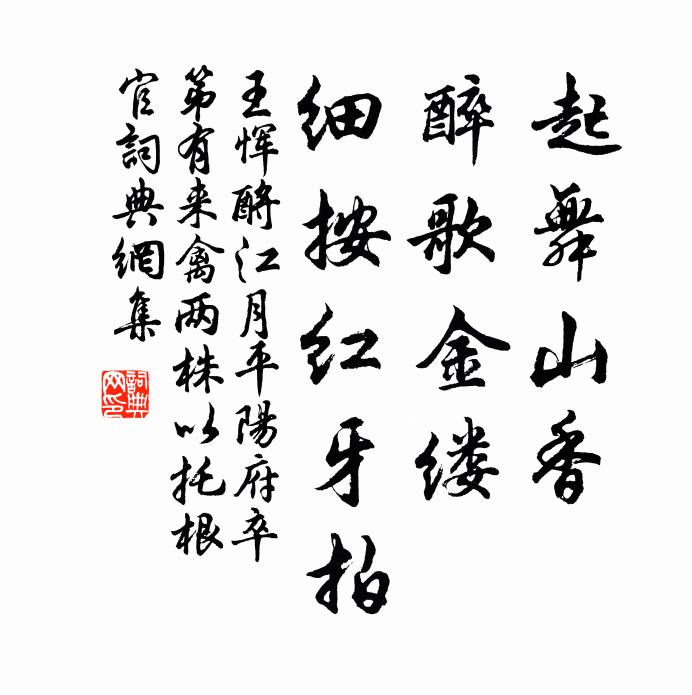 起舞山香
醉歌金缕
细按红牙拍
王恽酹江月平陽府卒
第有来禽两株以托根
官詞典網集
詞典網印